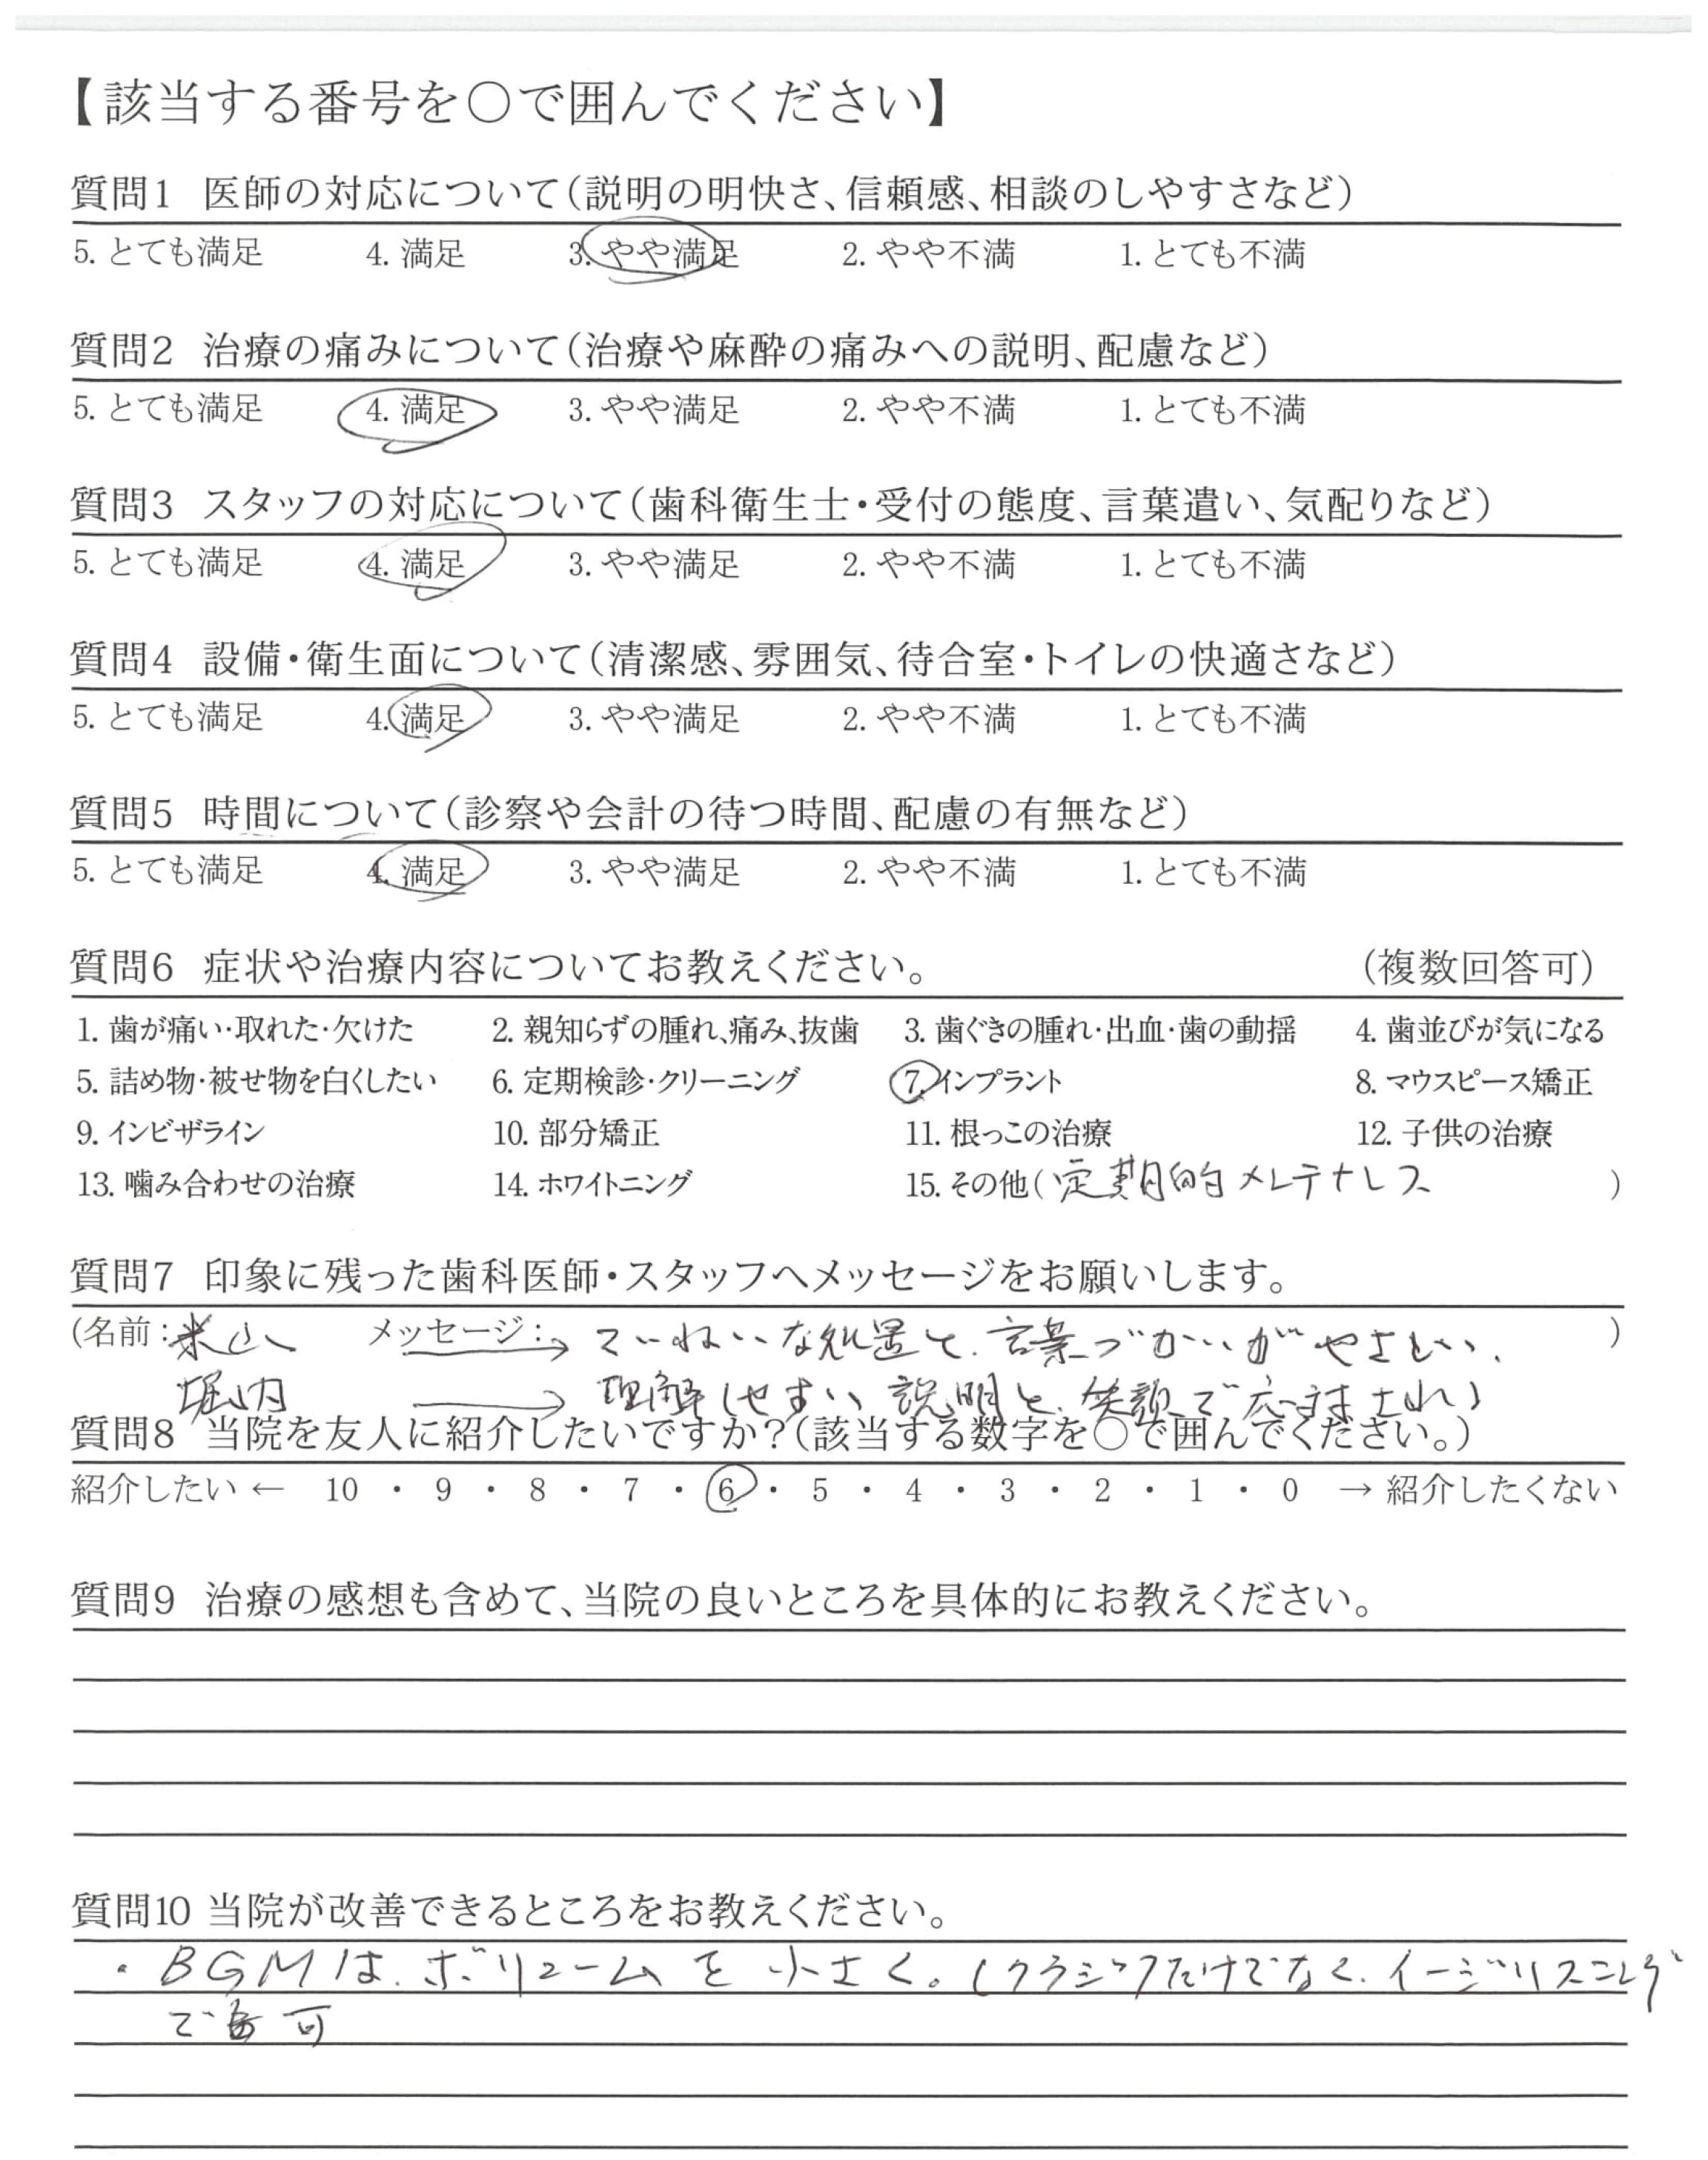 【該当する番号を○で囲んでください】
質問1 医師の対応について(説明の明快さ、信頼感、相談のしやすさなど)
5. とても満足 4. 満足 3. やや満足 2. やや不満 1. とても不満
質問2 治療の痛みについて(治療や麻酔の痛みへの説明、配慮など)
5. とても満足 4. 満足 3. やや満足 2. やや不満 1. とても不満
質問3 スタッフの対応について(歯科衛生士・受付の態度、言葉遣い、気配りなど)
5. とても満足 4. 満足 3. やや満足 2. やや不満 1. とても不満
質問4 設備・衛生面について(清潔感、雰囲気、待合室・トイレの快適さなど)
5. とても満足 4. 満足 3. やや満足 2. やや不満 1. とても不満
質問5 時間について(診察や会計の待つ時間、配慮の有無など)
5. とても満足 4. 満足 3. やや満足 2. やや不満 1. とても不満
質問6 症状や治療内容についてお教えください。 (複数回答可)
1. 歯が痛い・取れた・欠けた 2. 親知らずの腫れ、痛み、抜歯 3. 歯ぐきの腫れ・出血・歯の動揺 4. 歯並びが気になる
5. 詰め物・被せ物を白くしたい 6. 定期検診・クリーニング 7. インプラント 8. マウスピース矯正
9. インビザライン 10. 部分矯正 11. 根っこの治療 12. 子供の治療
13. 噛み合わせの治療 14. ホワイトニング 15. その他(定期的メンテナンス)
質問7 印象に残った歯科医師・スタッフへメッセージをお願いします。
(名前:米山 メッセージ:→ ていねいな処置と、言葉づかいがやさしい、)
堀内 → 理解しやすい説明と、笑顔で応対される
質問8 当院を友人に紹介したいですか?(該当する数字を○で囲んでください。)
紹介したい ← 10 ・ 9 ・ 8 ・ 7 ・ 6 ・ 5 ・ 4 ・ 3 ・ 2 ・ 1 ・ 0 → 紹介したくない
質問9 治療の感想も含めて、当院の良いところを具体的にお教えください。
質問10 当院が改善できるところをお教えください。
・BGMは、ボリュームを小さく。(クラシックだけでなく、イージリスニング
でも可